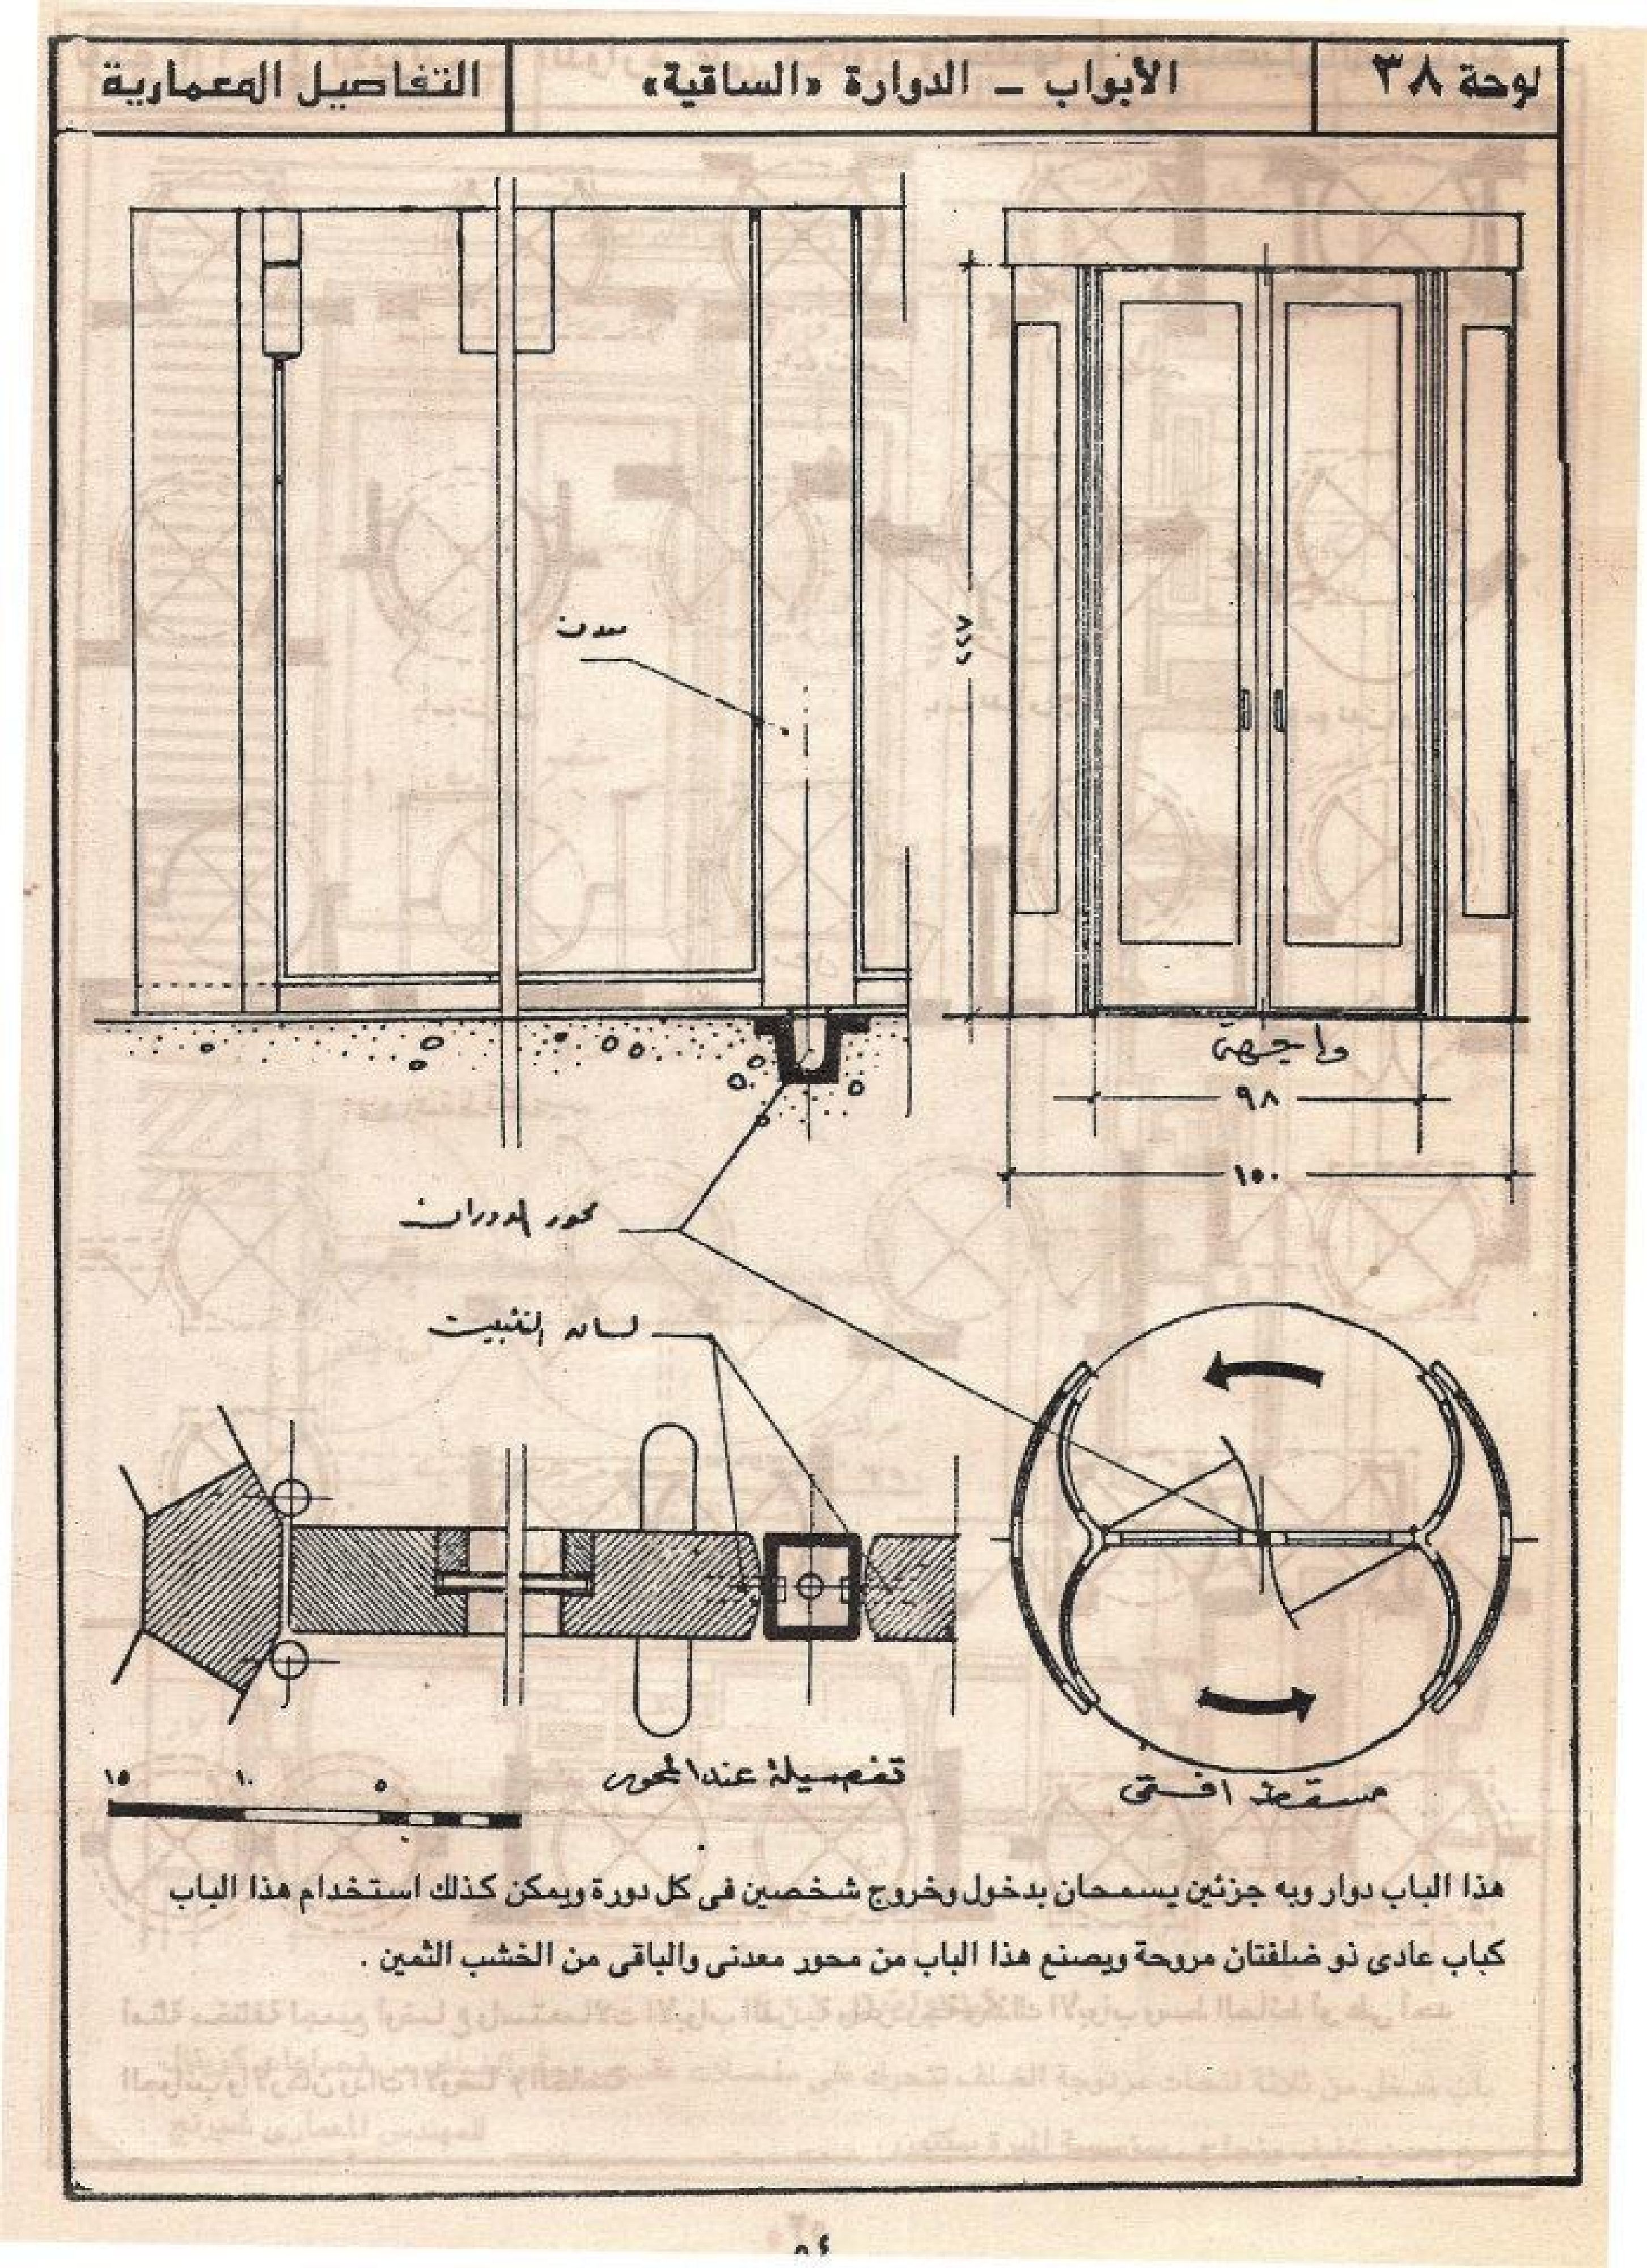 لوحة ٣٨
الأبواب – الدوارة «الساقية»
التفاصيل المعمارية
معدن
٢٢٧
واجهة
٩٨
١٥٠
محور الدوران
لسان التثبيت
تفصيلة عند المحور
مسقط افقى
١٥ ١٠ ٥
هذا الباب دوار وبه جزئين يسمحان بدخول وخروج شخصين فى كل دورة ويمكن كذلك استخدام هذا الباب
كباب عادى ذو ضلفتان مروحة ويصنع هذا الباب من محور معدنى والباقى من الخشب الثمين .